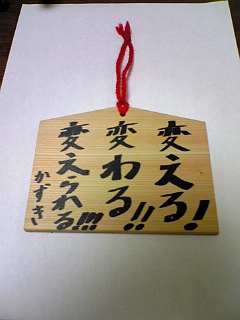 変える!
変わる!!
変えられる!!!
かずき